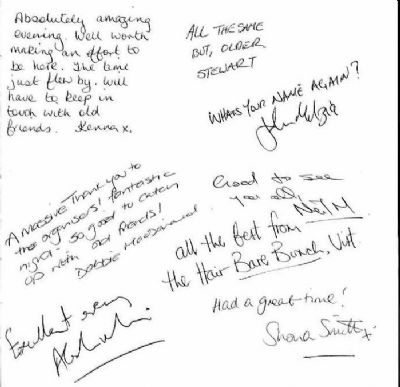 Absolutely amazing
evening. Well worth
making an effort to
be here. The time
just flew by. Will
have to keep in
touch with old
friends. Kenna x.
ALL THE SAME
BUT, OLDER
STEWART
WHATS YOUR NAME AGAIN?
John
A Massive Thank you to
the organisers! Fantastic
night - so good to catch
up with old friends!
Debbie
Good to see
you all,
all the best from
the Hair Bare Bunch.
Had a great time!
Shona Smith x
Excellent